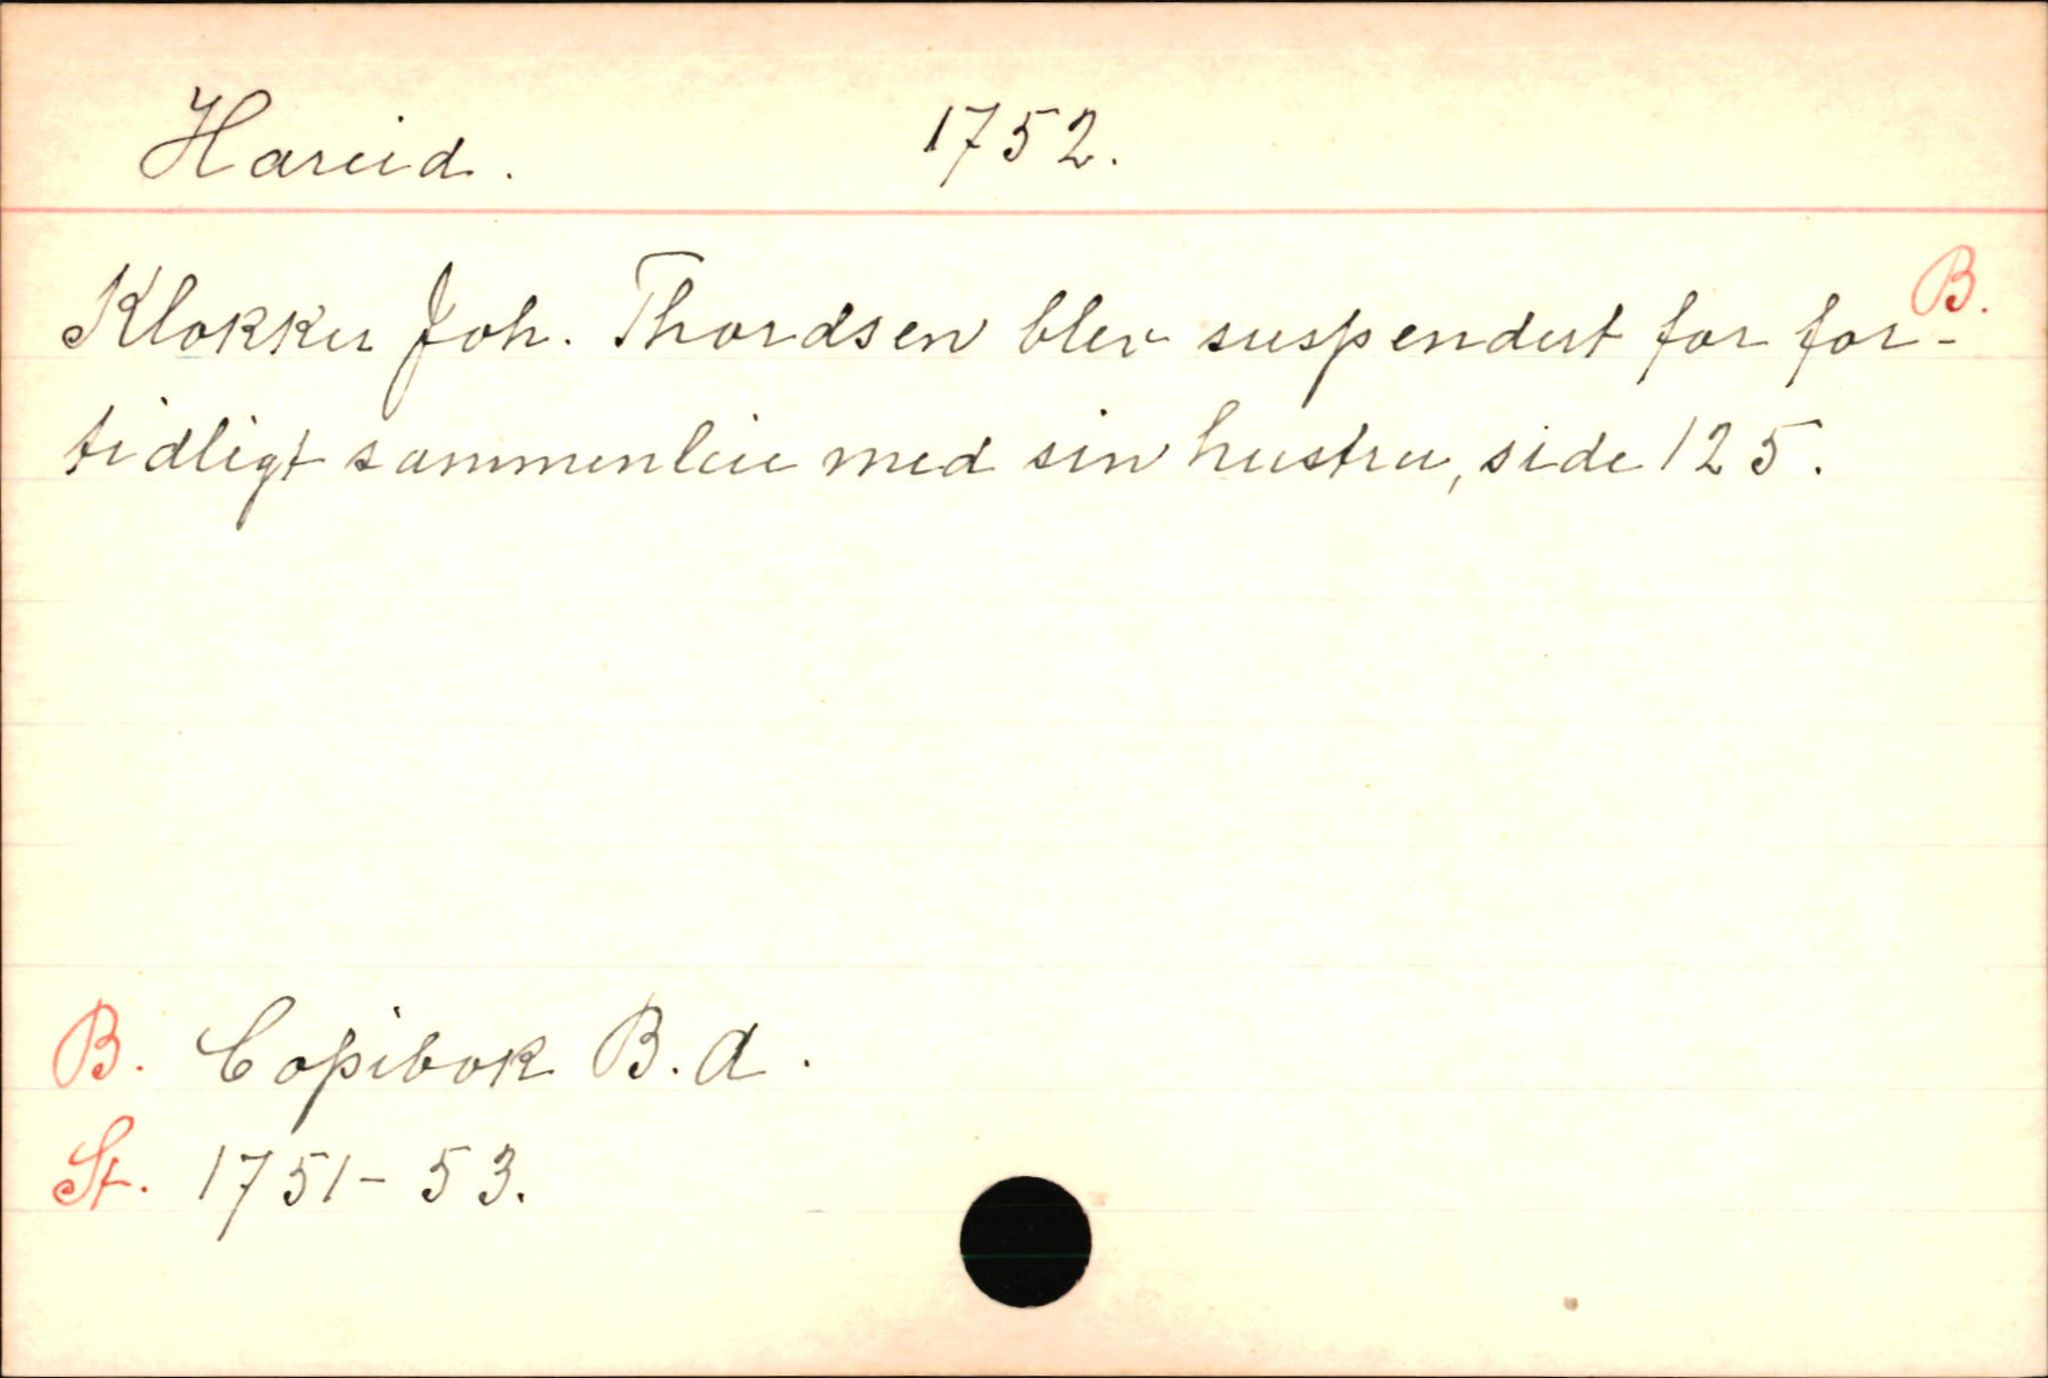 Hareid. 1752.
B.
Klokker Joh. Thordsen blev suspendert for for-
tidligt sammenleie med sin hustru, side 125.
B. Copibok B. A.
St. 1751-53.